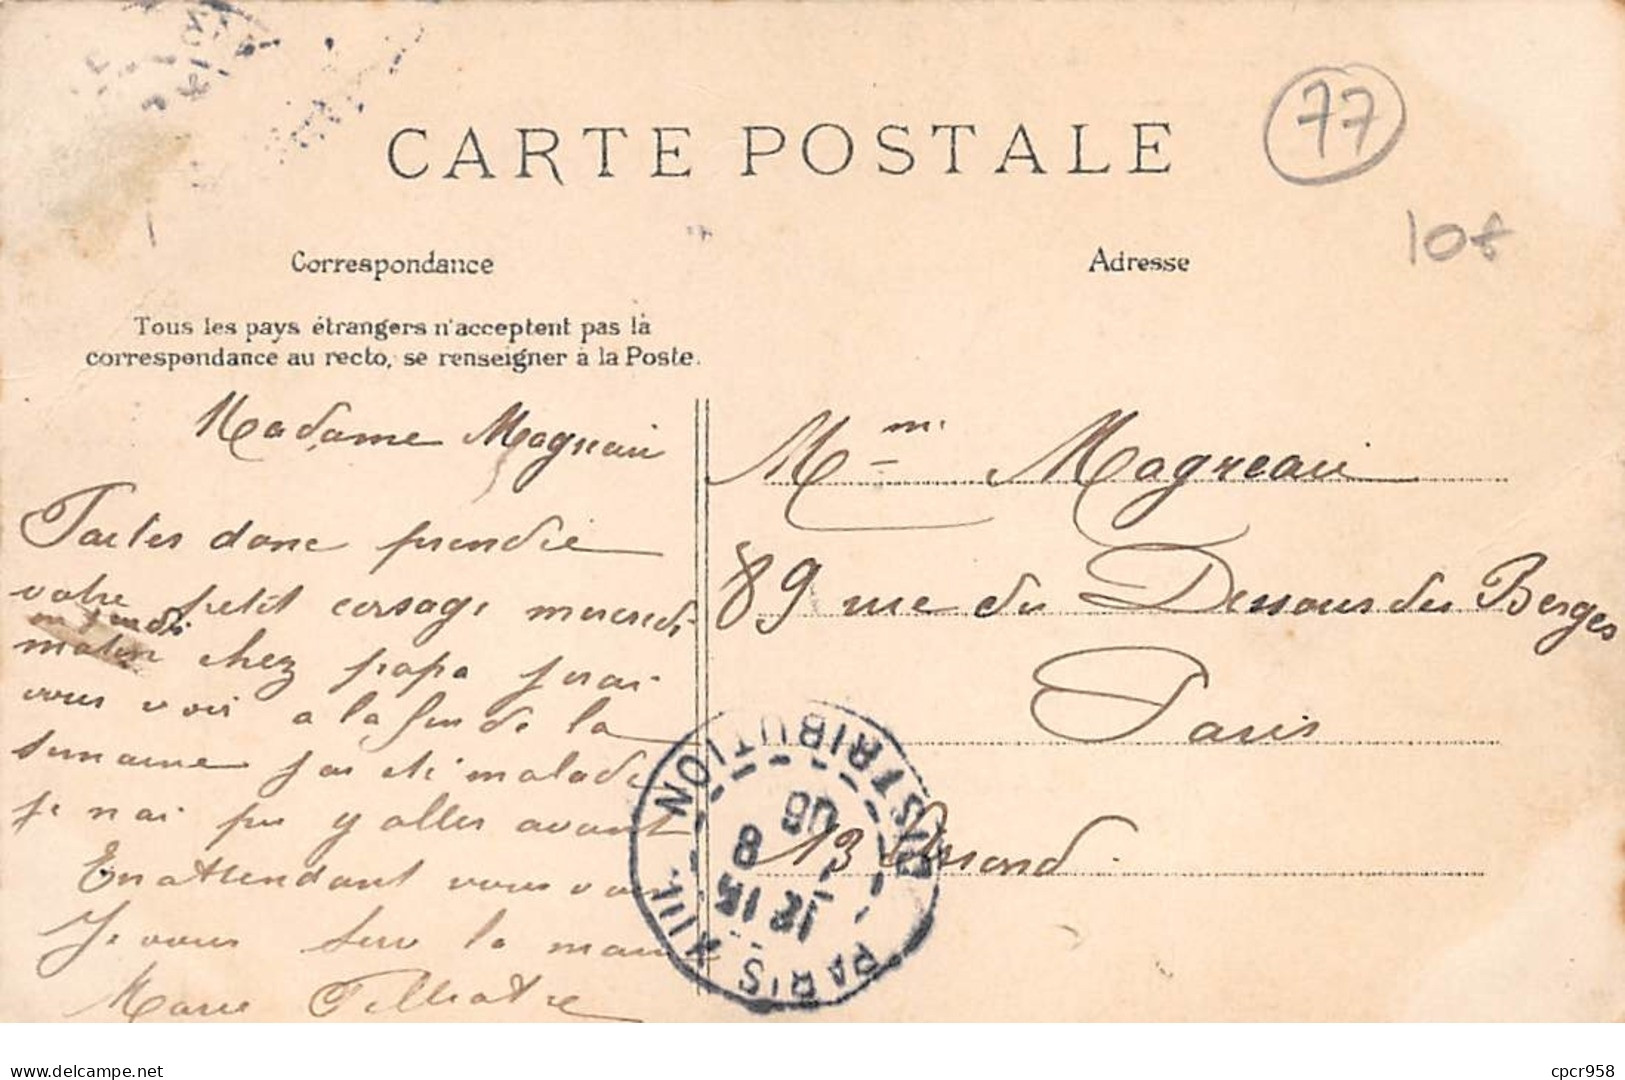 CARTE POSTALE
77
10f
Correspondance
Adresse
Tous les pays étrangers n'acceptent pas la
correspondance au recto, se renseigner à la Poste.
Madame Magneau
Faites donc prendre
votre petit corsage mercredi
ou jeudi
matin chez papa j'irai
vous voir a la fin de la
semaine j'ai été malade
je n'ai pu y aller avant
En attendant vous voir
Je vous serre la main
Marie
Mme Magneau
89 rue du Dessous des Berges
Paris
13
PARIS XIII DISTRIBUTION
12 15
8
06
www.delcampe.net
cpcr958